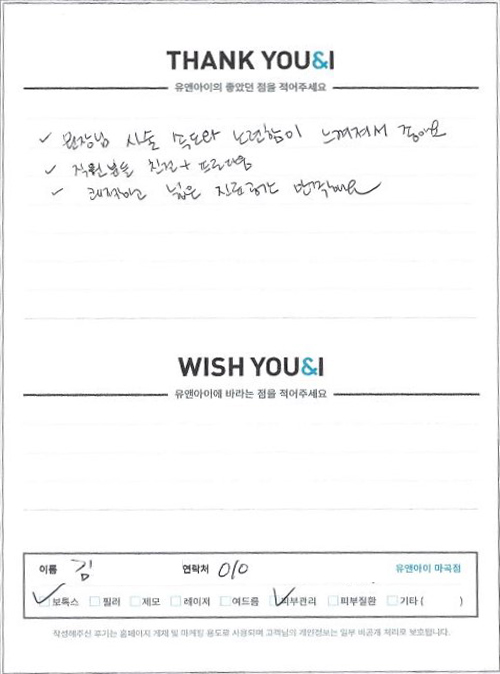 THANK YOU&I
유앤아이의 좋았던 점을 적어주세요
✓ 원장님 시술 속도와 노련함이 느껴져서 좋아요
✓ 직원분들 친절+프로다움
✓ 쾌적하고 넓은 진료공간 만족해요
WISH YOU&I
유앤아이에 바라는 점을 적어주세요
이름 김 연락처 010 유앤아이 마곡점
보톡스 필러 제모 레이저 여드름 피부관리 피부질환 기타 ( )
작성해주신 후기는 홈페이지 게재 및 마케팅 용도로 사용되며 고객님의 개인정보는 일부 비공개 처리로 보호됩니다.